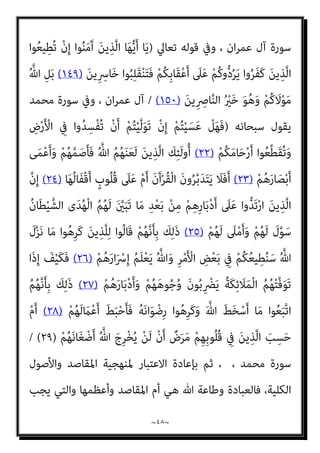 سورة آل عمران ، وفي قوله تعالي (يَا أَيُّهَا الَّذِينَ آَمَنُوا إِنْ تُطِيعُوا
الَّذِينَ كَفَرُوا يَرُدُّوكُمْ عَلَى أَعْقَابِكُمْ فَتَنْقَلِبُوا خَاسِرِينَ (١٤٩) بَلِ اللَّهُ
مَوْلَاكُمْ وَهُوَ خَيْرُ النَّاصِرِينَ (١٥٠) / آل عمران ، وفي سورة محمد
يقول سبحانه (فَهَلْ عَسَيْتُمْ إِنْ تَوَلَّيْتُمْ أَنْ تُفْسِدُوا فِي الْأَرْضِ
وَتُقَطِّعُوا أَرْحَامَكُمْ (٢٢) أُولَئِكَ الَّذِينَ لَعَنَهُمُ اللَّهُ فَأَصَمَّهُمْ وَأَعْمَى
أَبْصَارَهُمْ (٢٣) أَفَلَا يَتَدَبَّرُونَ الْقُرْآَنَ أَمْ عَلَى قُلُوبٍ أَقْفَالُهَا (٢٤) إِنَّ
الَّذِينَ ارْتَدُّوا عَلَى أَدْبَارِهِمْ مِنْ بَعْدِ مَا تَبَيَّنَ لَهُمُ الْهُدَى الشَّيْطَانُ
سَوَّلَ لَهُمْ وَأَمْلَى لَهُمْ (٢٥) ذَلِكَ بِأَنَّهُمْ قَالُوا لِلَّذِينَ كَرِهُوا مَا نَزَّلَ
اللَّهُ سَنُطِيعُكُمْ فِي بَعْضِ الْأَمْرِ وَاللَّهُ يَعْلَمُ إِسْرَارَهُمْ (٢٦) فَكَيْفَ إِذَا
تَوَفَّتْهُمُ الْمَلَائِكَةُ يَضْرِبُونَ وُجُوهَهُمْ وَأَدْبَارَهُمْ (٢٧) ذَلِكَ بِأَنَّهُمُ
اتَّبَعُوا مَا أَسْخَطَ اللَّهَ وَكَرِهُوا رِضْوَانَهُ فَأَحْبَطَ أَعْمَالَهُمْ (٢٨) أَمْ
حَسِبَ الَّذِينَ فِي قُلُوبِهِمْ مَرَضٌ أَنْ لَنْ يُخْرِجَ اللَّهُ أَضْغَانَهُمْ (٢٩) /
سورة محمد ، ، ثم بإعادة الاعتبار لمنهجية المقاصد والأصول
الكلية، فالعبادة وطاعة الله هي أم المقاصد وأعظمها والتي يجب
~٤٨~